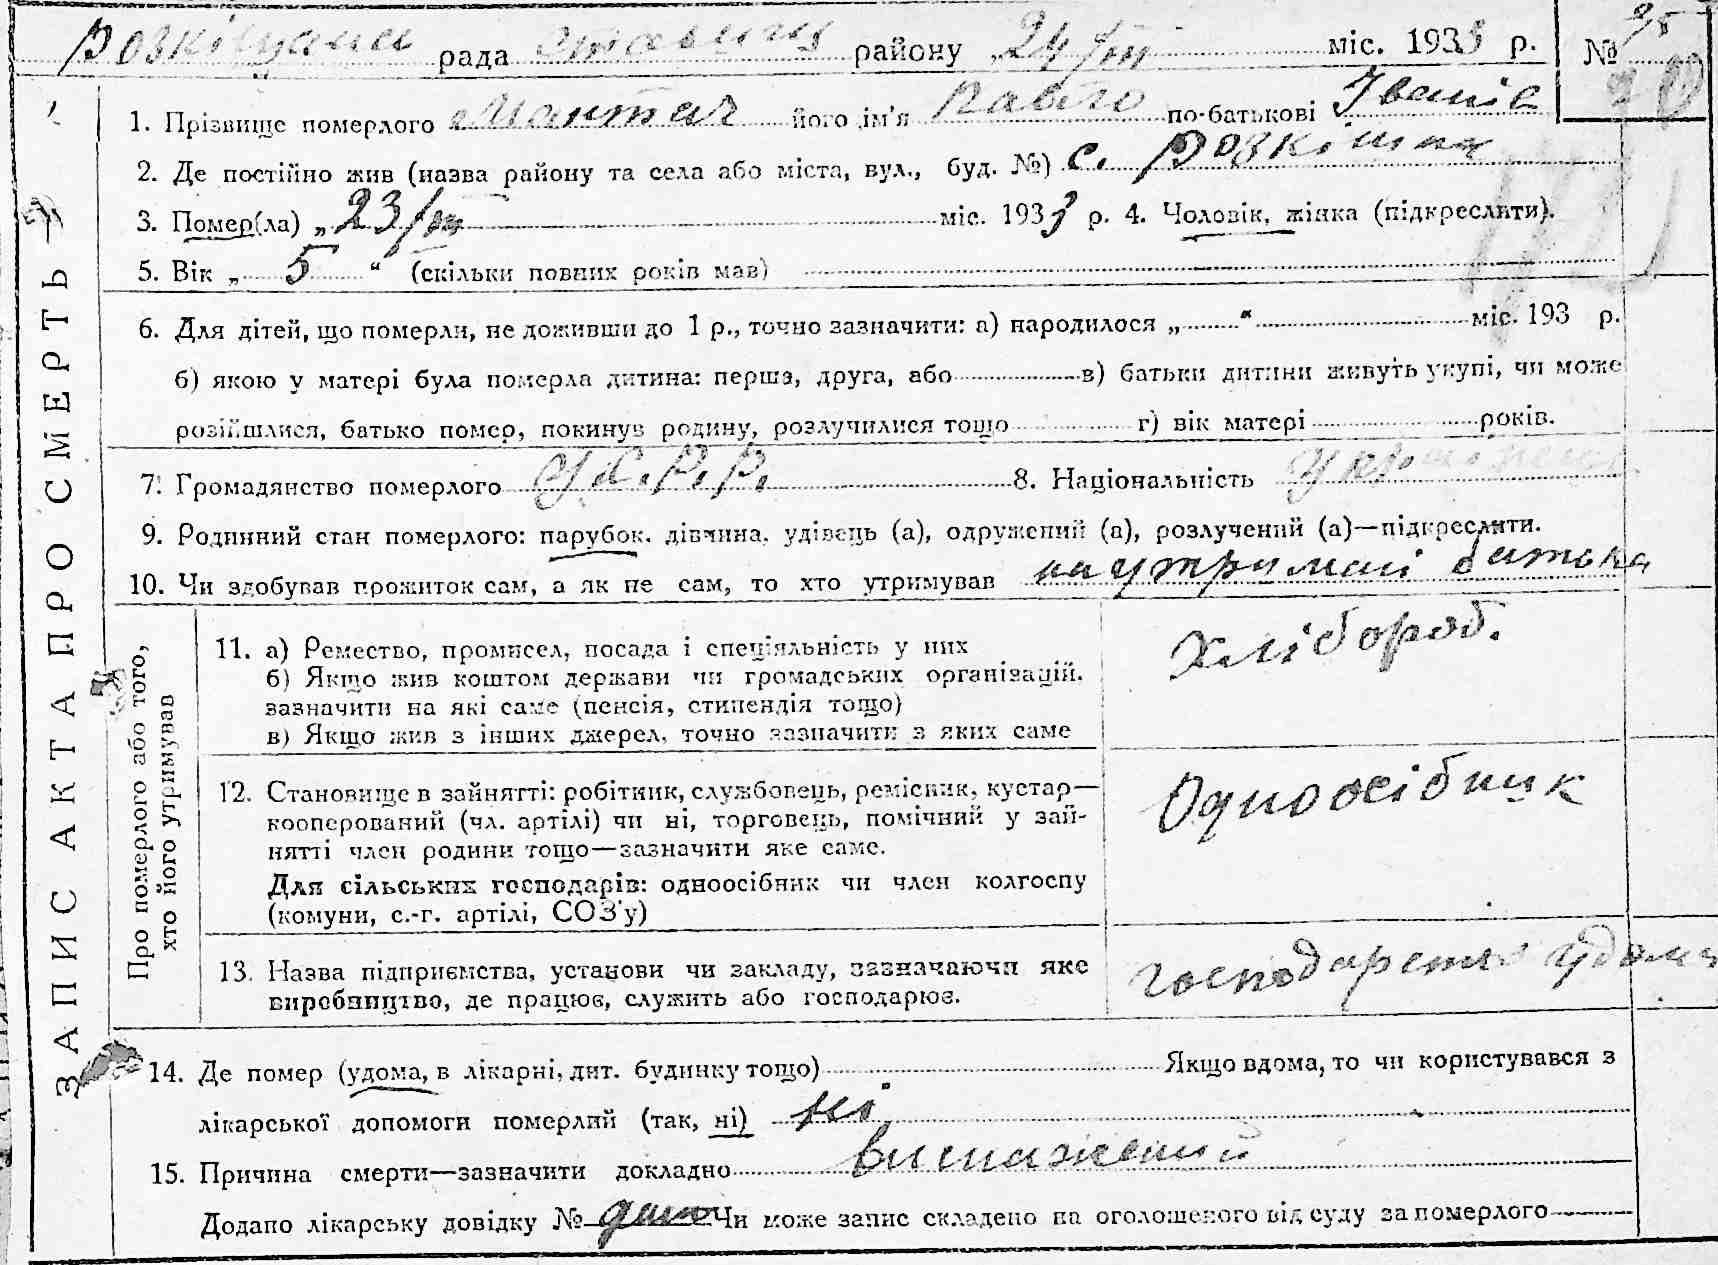 Розкішна рада Ставищ району 24/III міс. 1933 р. №
1. Прізвище померлого Мантач його ім'я Павло по-батькові Іванів
2. Де постійно жив (назва району та села або міста, вул., буд. №) с. Розкішна
3. Помер(ла) „23/III міс. 1933 р. 4. Чоловік, жінка (підкреслити).
5. Вік „ 5 “ (скільки повних років мав)
6. Для дітей, що померли, не доживши до 1 р., точно зазначити: а) народилося „ “ міс. 193 р.
б) якою у матері була померла дитина: перша, друга, або в) батьки дитини живуть укупі, чи може
розійшлися, батько помер, покинув родину, розлучилися тощо г) вік матері років.
7. Громадянство померлого У.С.Р.Р. 8. Національність Українець
9. Родинний стан померлого: парубок, дівчина, удівець (а), одружений (а), розлучений (а)—підкреслити.
10. Чи здобував прожиток сам, а як не сам, то хто утримував на утримані батька
ЗАПИС АКТА ПРО СМЕРТЬ
Про померлого або того,
хто його утримував
11. а) Ремество, промисел, посада і спеціяльність у них
б) Якщо жив коштом держави чи громадських організацій,
зазначити на які саме (пенсія, стипендія тощо)
в) Якщо жив з інших джерел, точно зазначити з яких саме
Хлібороб.
12. Становище в зайнятті: робітник, службовець, ремісник, кустар—
кооперований (чл. артілі) чи ні, торговець, помічний у зай-
нятті член родини тощо—зазначити яке саме.
Для сільських господарів: одноосібник чи член колгоспу
(комуни, с.-г. артілі, СОЗ'у)
Одноосібник
13. Назва підприємства, установи чи закладу, зазначаючи яке
виробництво, де працює, служить або господарює.
господарство удома
14. Де помер (удома, в лікарні, дит. будинку тощо) Якщо вдома, то чи користувався з
лікарської допомоги померлий (так, ні) ні
15. Причина смерти—зазначити докладно виснажений
Додано лікарську довідку № Чи може запис складено на оголошеного від суду за померлого